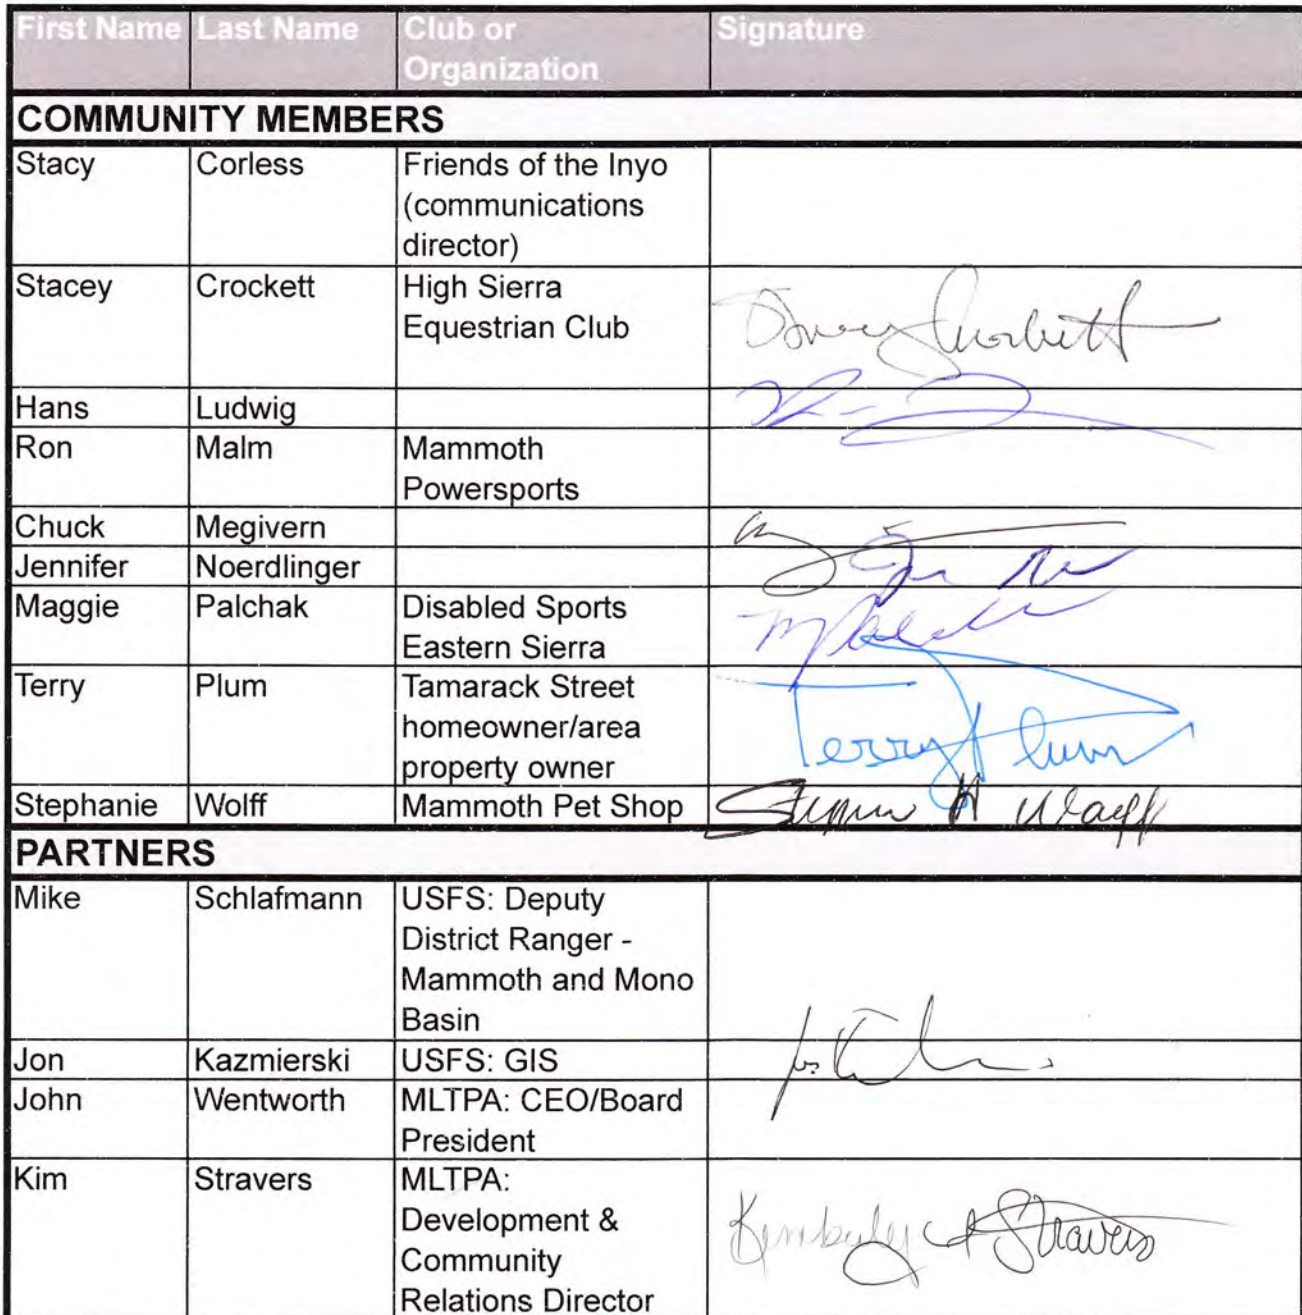 First Name Last Name Club or Organization Signature
COMMUNITY MEMBERS
Stacy Corless Friends of the Inyo
(communications
director)
Stacey Crockett High Sierra
Equestrian Club
Stacey Crockett
Hans Ludwig
Ron Malm Mammoth
Powersports
Chuck Megivern
Jennifer Noerdlinger
Maggie Palchak Disabled Sports
Eastern Sierra
Terry Plum Tamarack Street
homeowner/area
property owner
Terry Plum
Stephanie Wolff Mammoth Pet Shop
PARTNERS
Mike Schlafmann USFS: Deputy
District Ranger -
Mammoth and Mono
Basin
Jon Kazmierski USFS: GIS
John Wentworth MLTPA: CEO/Board
President
Kim Stravers MLTPA:
Development &
Community
Relations Director
Kimberly A Stravers